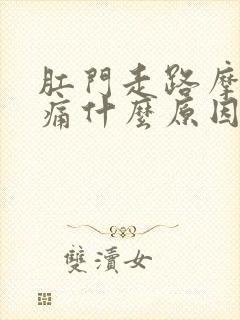 肛門走路摩
痛什麼原因
雙瀆女